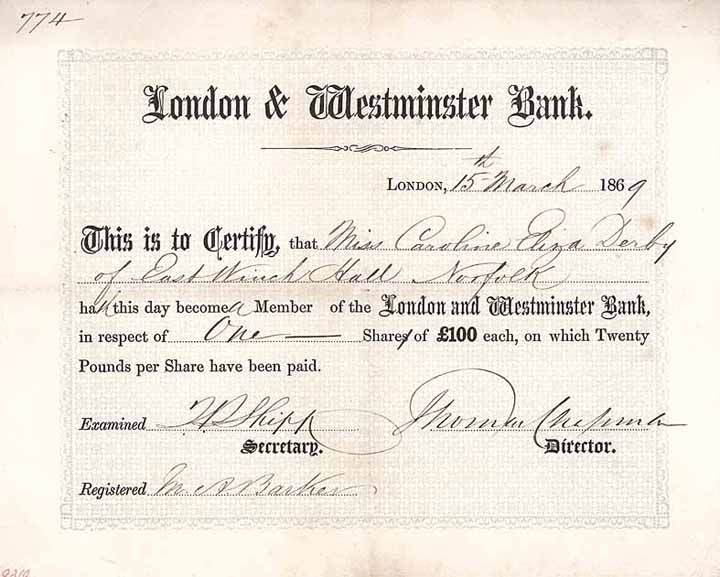 774
London & Westminster Bank.
London, 15th March 1869
This is to Certify, that Miss Caroline Eliza Derby
of East Winch Hall Norfolk
has this day become a Member of the London and Westminster Bank,
in respect of One Share of £100 each, on which Twenty
Pounds per Share have been paid.
Examined Shipp Thomas Chapman
Secretary. Director.
Registered M A Barker